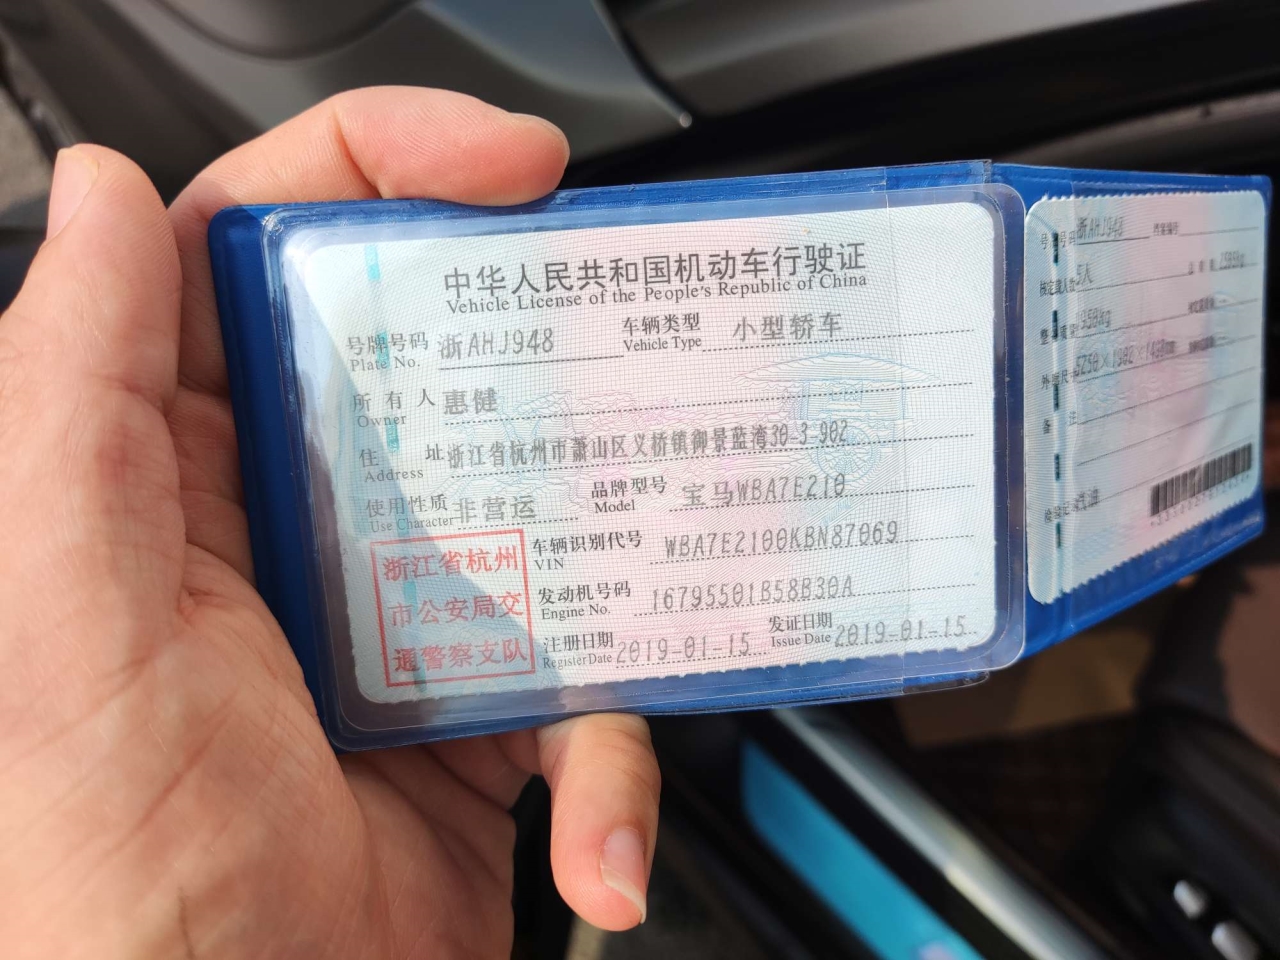 中华人民共和国机动车行驶证
Vehicle License of the People's Republic of China
号牌号码 浙AHJ948 车辆类型 小型轿车
Plate No. Vehicle Type
所有人 惠健
Owner
住址 浙江省杭州市萧山区义桥镇御景蓝湾30-3-902
Address
使用性质 非营运 品牌型号 宝马WBA7E210
Use Character Model
浙江省杭州
市公安局交
通警察支队
车辆识别代号 WBA7E2100KBN87069
VIN
发动机号码 16795501B58B30A
Engine No.
注册日期 2019-01-15 发证日期 2019-01-15
Register Date Issue Date
号牌号码 浙AHJ948
核定载人数 5人
整 1950kg
外 尺 5250×1902×1498
备 注
汽油